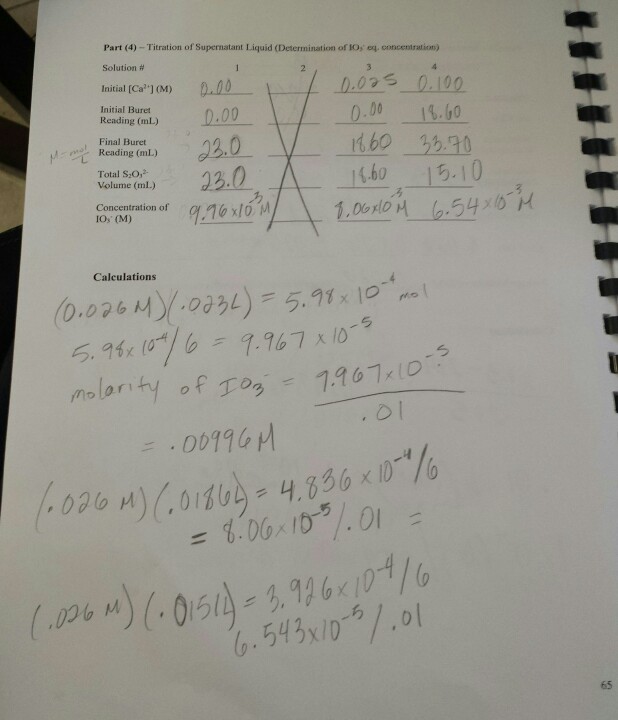 Part (4) – Titration of Supernatant Liquid (Determination of IO3- eq. concentration)
Solution # 1 2 3 4
Initial [Ca2+] (M) 0.00 0.025 0.100
Initial Buret
Reading (mL) 0.00 0.00 18.60
M = mol/L
Final Buret
Reading (mL) 23.0 18.60 33.70
Total S2O3 2-
Volume (mL) 23.0 18.60 15.10
Concentration of
IO3- (M) 9.96 x10-3 M 8.06x10-3 M 6.54x10-3 M
Calculations
(0.026 M)(.023L) = 5.98 x 10-4 mol
5.98x 10-4/6 = 9.967 x 10-5
molarity of IO3- = 9.967x10-5
.01
= .00996M
(.026 M)(.0186L) = 4.836 x 10-4/6
= 8.06x10-5/.01 =
(.026 M)(.0151L) = 3.926x10-4/6
6.543x10-5/.01
65